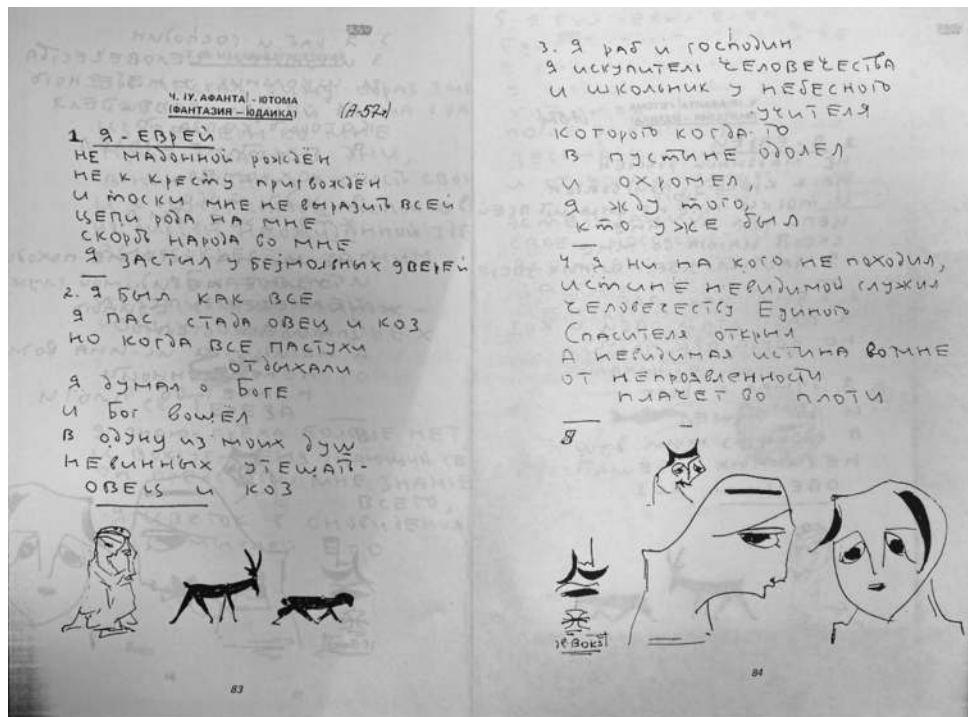 Ч. IУ. АФАНТА - ЮТОМА
(ФАНТАЗИЯ – ЮДАИКА) (А-57г)
1. Я - ЕВРЕЙ
НЕ МАДОННОЙ РОЖДЁН
НЕ К КРЕСТУ ПРИГВОЖДЁН
И ТОСКИ МНЕ НЕ ВЫРАЗИТЬ ВСЕЙ
ЦЕПИ РОДА НА МНЕ
СКОРБЬ НАРОДА ВО МНЕ
Я ЗАСТЫЛ У БЕЗМОЛВНЫХ ДВЕРЕЙ
2. Я БЫЛ КАК ВСЕ
Я ПАС СТАДА ОВЕЦ И КОЗ
НО КОГДА ВСЕ ПАСТУХИ
ОТДЫХАЛИ
Я ДУМАЛ О БОГЕ
И БОГ ВОШЁЛ
В ОДНУ ИЗ МОИХ ДУШ
НЕВИННЫХ УТЕШАТЬ -
ОВЕЦ И КОЗ
83
3. Я РАБ И ГОСПОДИН
Я ИСКУПИТЕЛЬ ЧЕЛОВЕЧЕСТВА
И ШКОЛЬНИК У НЕБЕСНОГО
УЧИТЕЛЯ
КОТОРОГО КОГДА-ТО
В ПУСТЫНЕ ОДОЛЕЛ
И ОХРОМЕЛ,
Я ЖДУ ТОГО,
КТО УЖЕ БЫЛ
4. Я НИ НА КОГО НЕ ПОХОДИЛ,
ИСТИНЕ НЕВИДИМОЙ СЛУЖИЛ
ЧЕЛОВЕЧЕСТВУ ЕДИНОГО
СПАСИТЕЛЯ ОТКРЫЛ
А НЕВИДИМАЯ ИСТИНА ВО МНЕ
ОТ НЕПРОЯВЛЕННОСТИ
ПЛАЧЕТ ВО ПЛОТИ
84